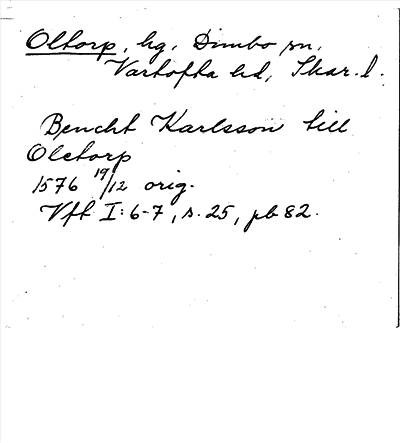 Oltorp, hg, Dimbo sn,
Vartofta hd, Skar. l.
Bencht Karlsson till
Oletorp
1576 19/12 orig.
Vft I:6-7, s. 25, pb 82.